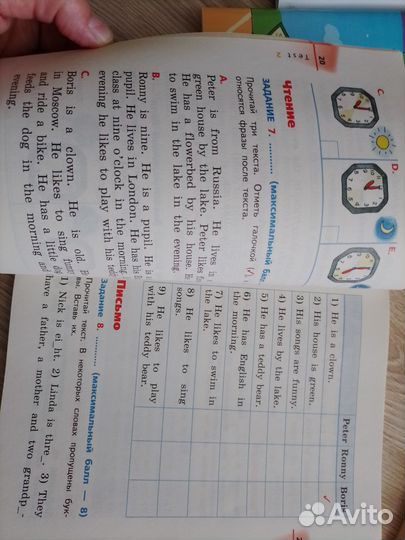 20
Test 2
C.
D.
E.
Чтение
ЗАДАНИЕ 7. .......... (максимальный
Прочитай три текста. Отметь галочкой (✓)
относятся фразы после текста.
A.
Peter is from Russia. He lives in
green house by the lake. Peter likes
He has a flowerbed by his house.
to swim in the lake in the evening.
B.
Ronny is nine. He is a pupil. He is
pupil. He lives in London. He has his
class at nine o'clock in the morning.
evening he likes to play with his
C.
Boris is a clown. He is old.
in Moscow. He likes to sing funny
and ride a bike. He has a little
feeds the dog in the morning and
evening.
Peter Ronny Boris
1) He is a clown. ✓
2) His house is green.
3) His songs are funny.
4) He lives by the lake.
5) He has a teddy bear.
6) He has English in
the morning.
7) He likes to swim in
the lake.
8) He likes to sing
songs.
9) He likes to play
with his teddy bear.
Письмо
Задание 8. .......... (максимальный балл — 8)
Прочитай текст. В некоторых словах пропущены бук-
вы. Вставь их.
1) Nick is ei_ht. 2) Linda is thre_. 3) They
have a father, a mother and two grandp_
Avito